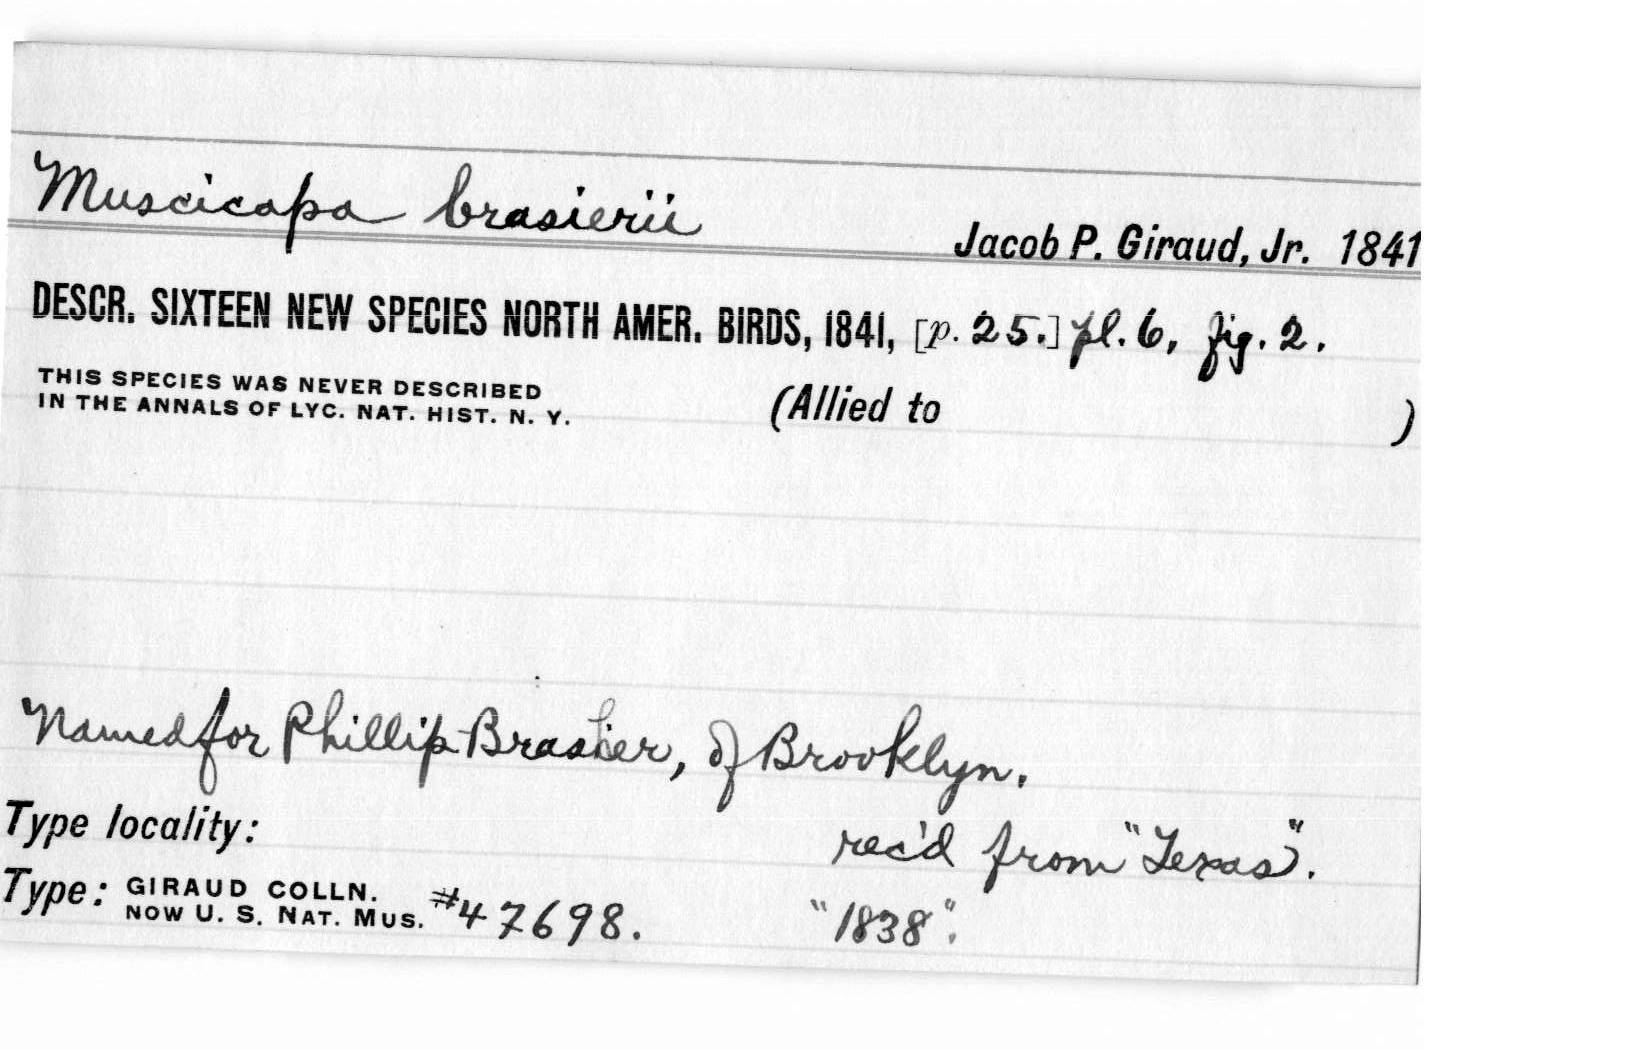 Muscicapa brasierii
Jacob P. Giraud, Jr. 1841
DESCR. SIXTEEN NEW SPECIES NORTH AMER. BIRDS, 1841, [p. 25.] pl. 6, fig. 2.
THIS SPECIES WAS NEVER DESCRIBED
IN THE ANNALS OF LYC. NAT. HIST. N. Y.
(Allied to )
Named for Phillip Brasher, of Brooklyn.
Type locality:
rec'd from "Texas".
Type: GIRAUD COLLN.
NOW U. S. NAT. MUS. #47698.
"1838".